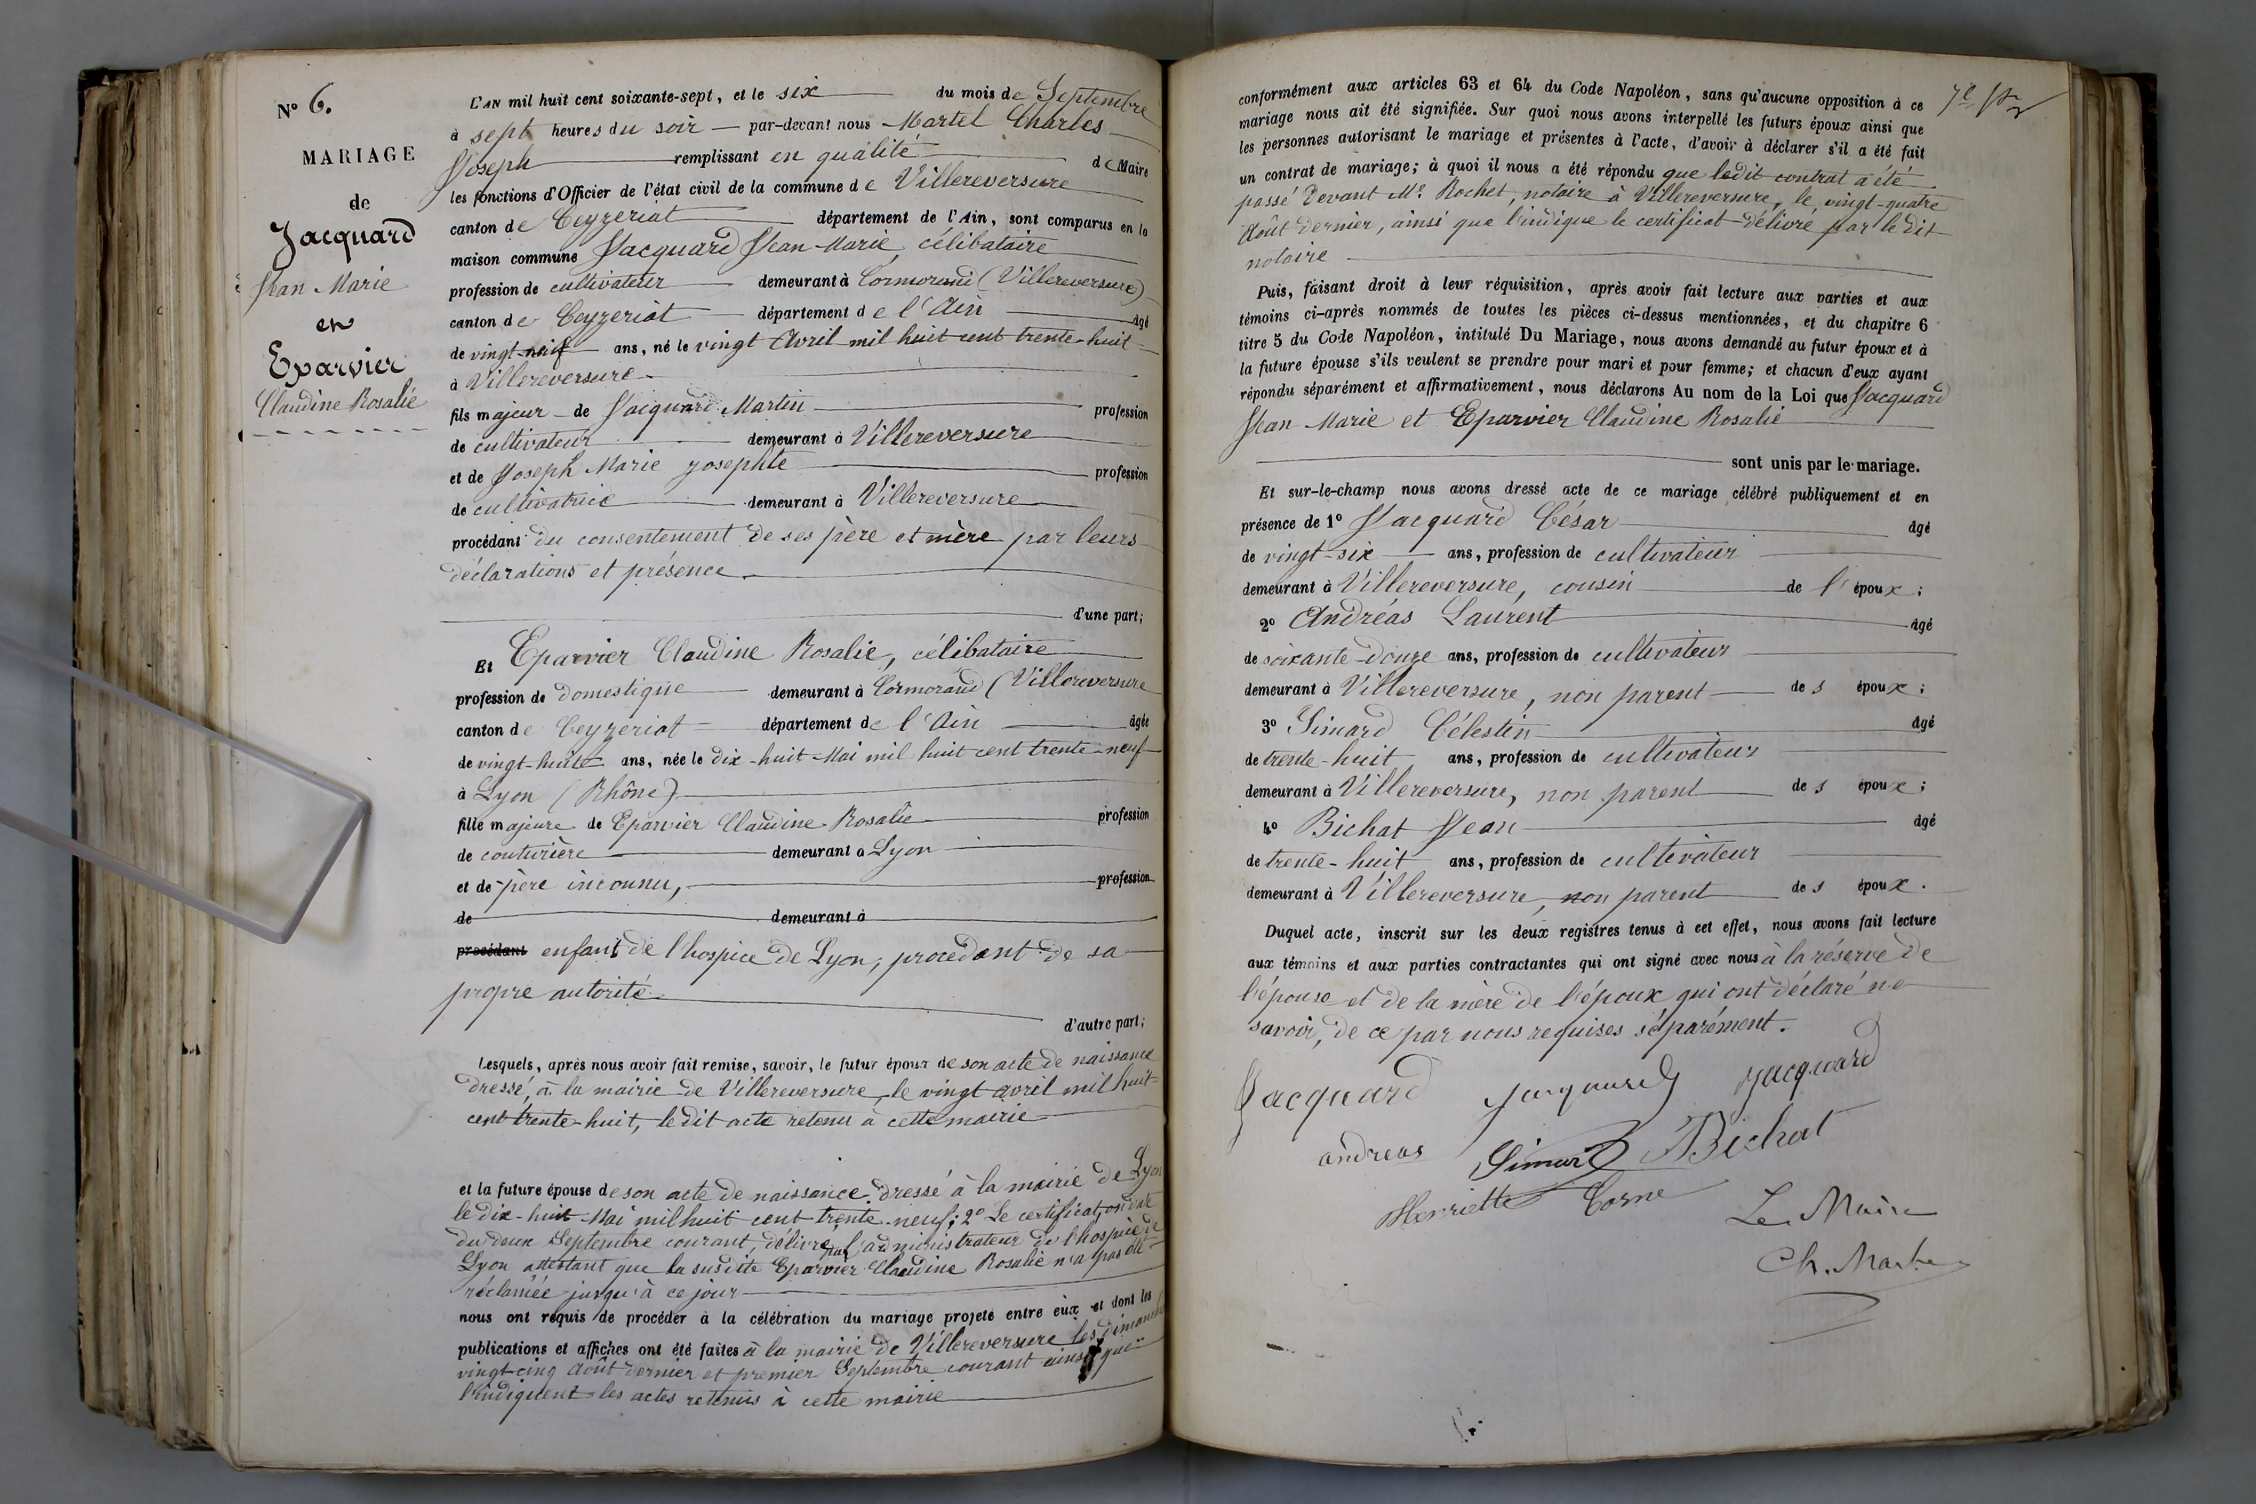 N° 6.
MARIAGE
de
Jacquard
Jean Marie
en
Eparvier
Claudine Rosalie
L'AN mil huit cent soixante-sept, et le six du mois de Septembre
à sept heures du soir par-devant nous Martel Charles
Joseph remplissant en qualité de Maire
les fonctions d'Officier de l'état civil de la commune de Villereversure
canton de Ceyzeriat département de l'Ain, sont comparus en la
maison commune Jacquard Jean Marie, célibataire
profession de cultivateur demeurant à Cormorand (Villereversure)
canton de Ceyzeriat département de l'Ain âgé
de vingt-neuf ans, né le vingt Avril mil huit cent trente-huit
à Villereversure
fils majeur de Jacquard Martin profession
de cultivateur demeurant à Villereversure
et de Joseph Marie Josephte profession
de cultivatrice demeurant à Villereversure
procédant du consentement de ses père et mère par leurs
déclarations et présence
d'une part;
Et Eparvier Claudine Rosalie, célibataire
profession de domestique demeurant à Cormorand (Villereversure
canton de Ceyzeriat département de l'Ain âgée
de vingt-huit ans, née le dix-huit Mai mil huit cent trente-neuf
à Lyon (Rhône)
fille majeure de Eparvier Claudine Rosalie profession
de couturière demeurant à Lyon
et de père inconnu, profession
de demeurant à
procédant enfant de l'hospice de Lyon, procédant de sa
propre autorité
d'autre part;
Lesquels, après nous avoir fait remise, savoir, le futur époux de son acte de naissance
dressé, à la mairie de Villereversure, le vingt avril mil huit
cent trente-huit, le dit acte retenu à cette mairie
et la future épouse de son acte de naissance dressé à la mairie de Lyon
le dix-huit Mai mil huit cent trente-neuf; 2° Le certificat, en date
du deux Septembre courant, délivré par l'administrateur de l'hospice de
Lyon attestant que la susdite Eparvier Claudine Rosalie n'a pas été
réclamée jusqu'à ce jour
nous ont requis de procéder à la célébration du mariage projeté entre eux et dont les
publications et affiches ont été faites à la mairie de Villereversure les dimanches
vingt-cinq Août dernier et premier Septembre courant ainsi que
l'indiquent les actes retenus à cette mairie
conformément aux articles 63 et 64 du Code Napoléon, sans qu'aucune opposition à ce
mariage nous ait été signifiée. Sur quoi nous avons interpellé les futurs époux ainsi que
les personnes autorisant le mariage et présentes à l'acte, d'avoir à déclarer s'il a été fait
un contrat de mariage; à quoi il nous a été répondu que ledit contrat a été
passé devant Me Rochet, notaire à Villereversure, le vingt-quatre
Août dernier, ainsi que l'indique le certificat délivré par le dit
notaire
Puis, faisant droit à leur réquisition, après avoir fait lecture aux parties et aux
témoins ci-après nommés de toutes les pièces ci-dessus mentionnées, et du chapitre 6
titre 5 du Code Napoléon, intitulé Du Mariage, nous avons demandé au futur époux et à
la future épouse s'ils veulent se prendre pour mari et pour femme; et chacun d'eux ayant
répondu séparément et affirmativement, nous déclarons Au nom de la Loi que Jacquard
Jean Marie et Eparvier Claudine Rosalie
sont unis par le mariage.
Et sur-le-champ nous avons dressé acte de ce mariage célébré publiquement et en
présence de 1° Jacquard César âgé
de vingt-six ans, profession de cultivateur
demeurant à Villereversure, cousin de l'époux;
2° Andréas Laurent âgé
de soixante-douze ans, profession de cultivateur
demeurant à Villereversure, non parent des époux;
3° Simard Célestin âgé
de trente-huit ans, profession de cultivateur
demeurant à Villereversure, non parent des époux;
4° Bichat Jean âgé
de trente-huit ans, profession de cultivateur
demeurant à Villereversure, non parent des époux.
Duquel acte, inscrit sur les deux registres tenus à cet effet, nous avons fait lecture
aux témoins et aux parties contractantes qui ont signé avec nous à la réserve de
l'épouse et de la mère de l'époux qui ont déclaré ne
savoir, de ce par nous requises séparément.
Jacquard Jacquard Jacquard
andreas Simard Bichat
Henriette Corne
Le Maire
Ch. Martel